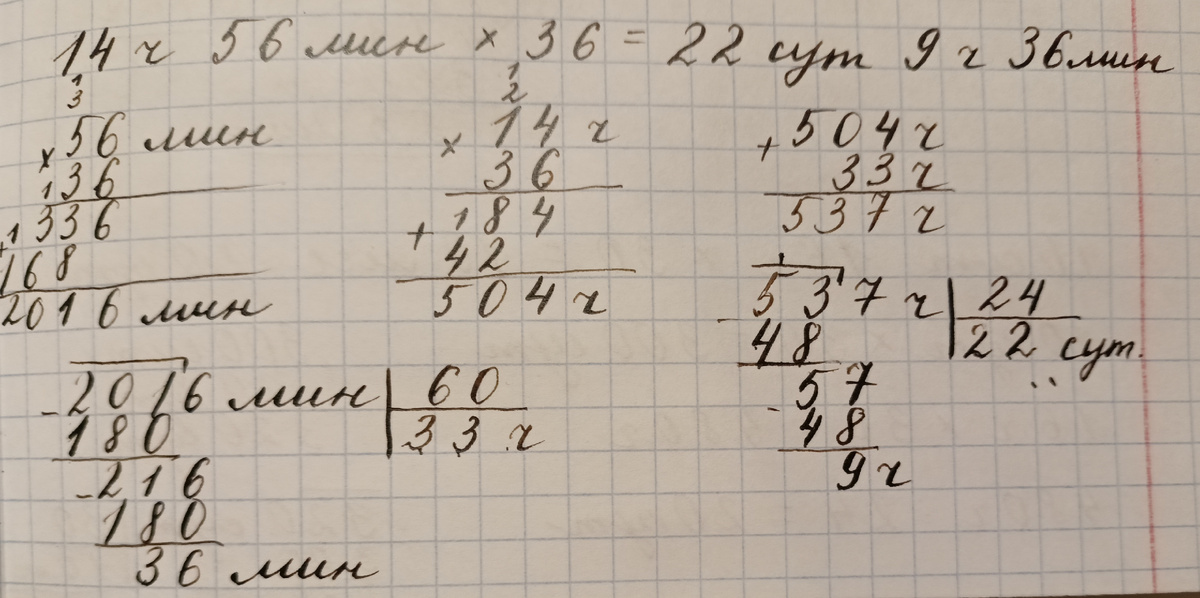 14 ч 56 мин × 36 = 22 сут 9 ч 36 мин
1
3
× 56 мин
1 36
+ 1 336
168
2016 мин
1
2
× 14 ч
36
+ 184
42
504 ч
+ 504 ч
33 ч
537 ч
- 2016 мин | 60
180 33 ч
- 216
180
36 мин
- 537 ч | 24
48 22 сут.
- 57
48
9 ч